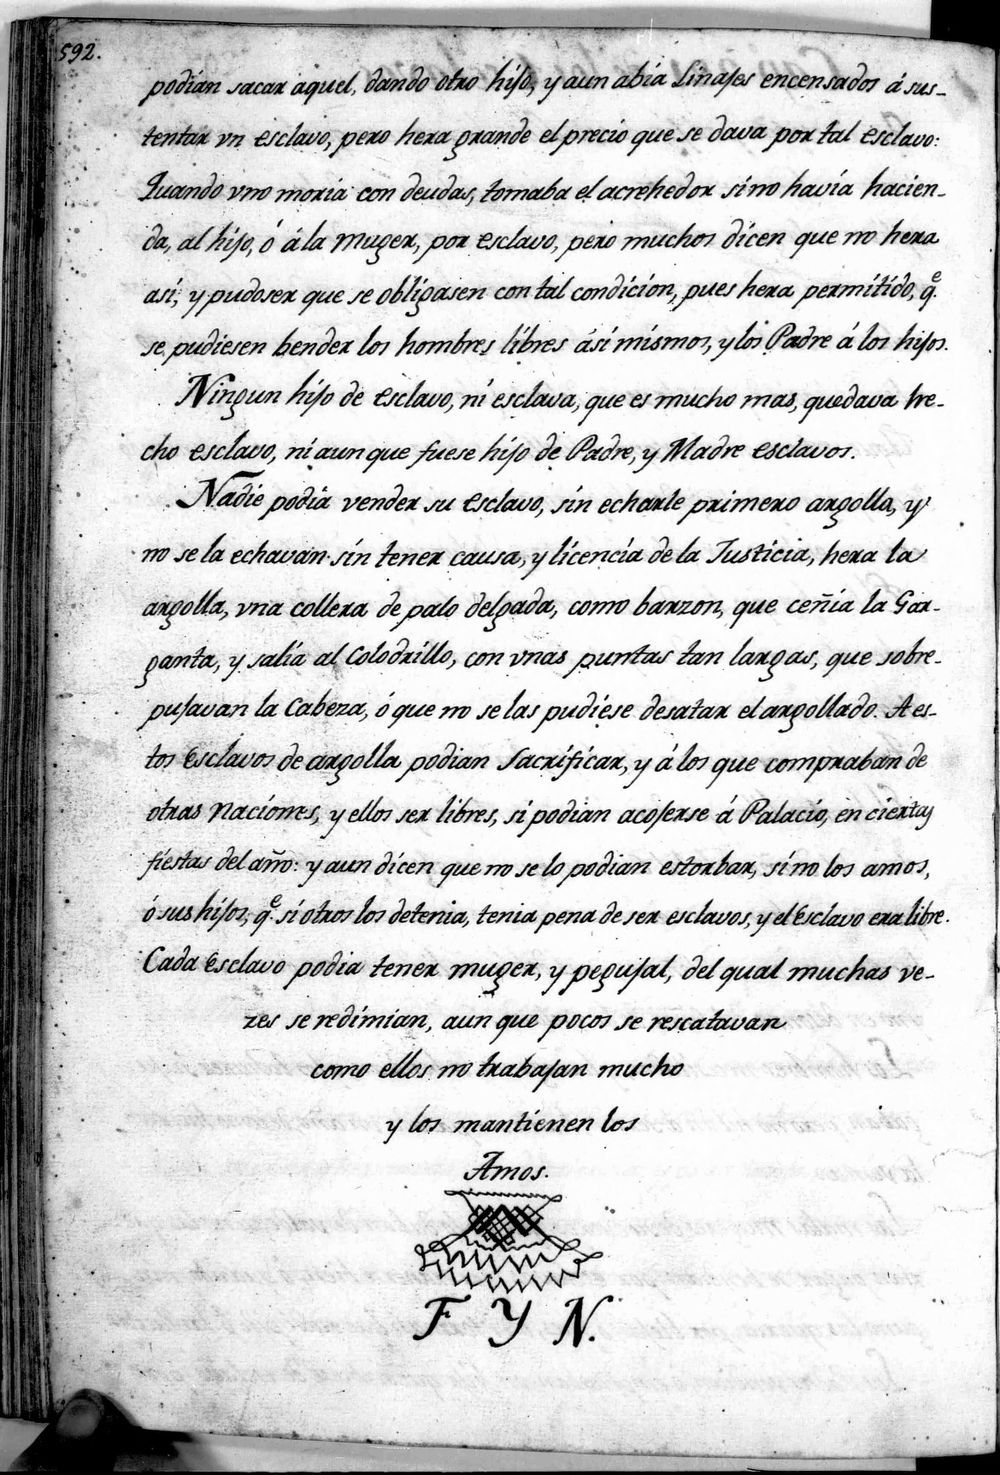 592.
podian sacar aquel, dando otro hijo, y aun abia Linajes encensados á sus-
tentar vn esclavo, pero hera grande el precio que se dava por tal esclavo:
Quando vno moria con deudas, tomaba el acrehedor sino havia hacien-
da, al hijo, ó á la muger, por esclavo, pero muchos dicen que no hera
asi, y pudoser que se obligasen con tal condicion, pues hera permitido, q.e
se pudiesen bender los hombres libres ási mismos, y los Padre á los hijos.
Ningun hijo de esclavo, ni esclava, que es mucho mas, quedava he-
cho esclavo, ni aun que fuese hijo de Padre, y Madre esclavos.
Nadie podia vender su esclavo, sin echarle primero argolla, y
no se la echavan sin tener causa, y licencia de la Justicia, hera la
argolla, vna collera de palo delgada, como barzon, que ceñia la Gar-
ganta, y salia al Colodrillo, con vnas puntas tan largas, que sobre-
pujavan la Cabeza, ó que no se las pudiese desatar el argollado. A es-
tos Esclavos de argolla podian Sacrificar, y á los que compraban de
otras naciones, y ellos ser libres, si podian acojerse á Palacio, en ciertas
fiestas del año: y aun dicen que no se lo podian estorbar, sino los amos,
ó sus hijos, q.e si otros los detenia, tenia pena de ser esclavos, y el Esclavo era libre.
Cada Esclavo podia tener muger, y pegujal, del qual muchas ve-
zes se redimian, aun que pocos se rescatavan
como ellos no trabajan mucho
y los mantienen los
Amos.
F Y N.